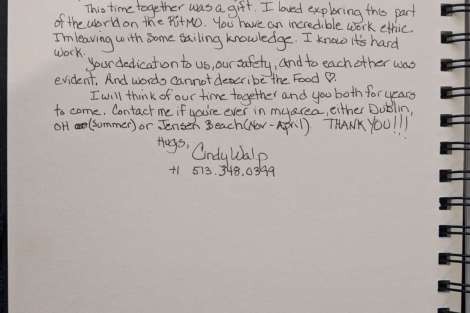 This time together was a gift. I loved exploring this part
of the world on the RITMO. You have an incredible work ethic.
I'm leaving with some sailing knowledge. I know it's hard
work.
Your dedication to us, our safety, and to each other was
evident. And words cannot describe the Food ♡.
I will think of our time together and you both for years
to come. Contact me if you're ever in my area, either Dublin,
OH (Summer) or Jensen Beach (Nov-April) THANK YOU!!!
Hugs,
Cindy Walp
+1 513.348.0399